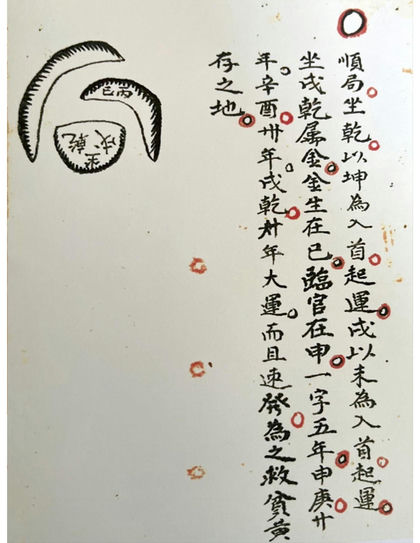 順局坐乾以坤為入首起運戌以未為入首起運
坐戌乾屬金金生在巳臨官在申一字五年申庚廿
年辛酉卅年戌乾卅年大運而且速發為之救貧黃
存之地
丙巳
坐戌乾